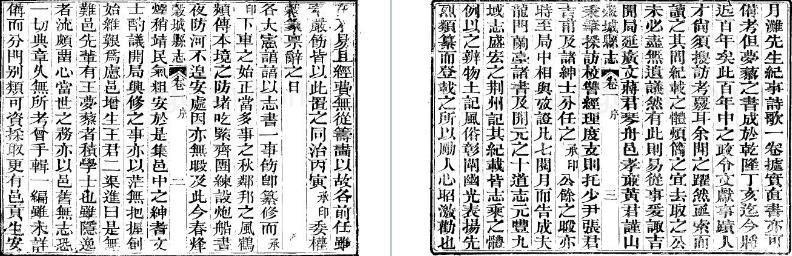 才易且經費無從籌濟以故各前任雖
嚴飭皆以此置之同治丙寅承印委權
穀篆禀辭之日
各大憲諄諄以志書一事飭即纂修而承
印下車之始正當多事之秋鄰邦之風鶴
頻傳本境之防堵吃緊齊團練設炮船晝
夜防河不遑安處因亦無暇及此今春烽
穀城縣志 卷 序 二
煙稍靖民氣粗安於是集邑中之紳耆文
士酌議開局興修之事亦以茫無把握創
始維艱為慮邑增生王君二渠進曰是無
難邑先輩有王夢蘇者積學士也雖隱逸
者流頗留心當世之務亦以邑舊無志恐
一切典章久無所考曾手輯一編雖未詳
備而分門別類可資採取更有邑貢生安
月灘先生紀事詩歌一卷據實直書亦可
備考但夢蘇之書成於乾隆丁亥迄今將
近百年矣此百年中之政令文獻事蹟人
才尚須搜訪考覈耳余聞之躍然亟索而
讀之其間紀載之體煩簡之宜去取之公
未必盡無遺議然有此則易從事爰諏吉
開局延廣文蔣君琴舟邑孝廉黃君謹山
穀城縣志 卷 序 三
秉筆採訪校讐經理度支則托少尹張君
吉甫及諸紳士分任之承印公餘之暇亦
時至局中相與攷證凡七閱月而告成夫
龍門蘭臺諸書及開元之十道志元豐九
域志盛宏之荊州記其紀載皆志乘之體
例以之辨物土記風俗彰闡幽光表揚先
烈類纂而登載之所以勵人心昭激勸也